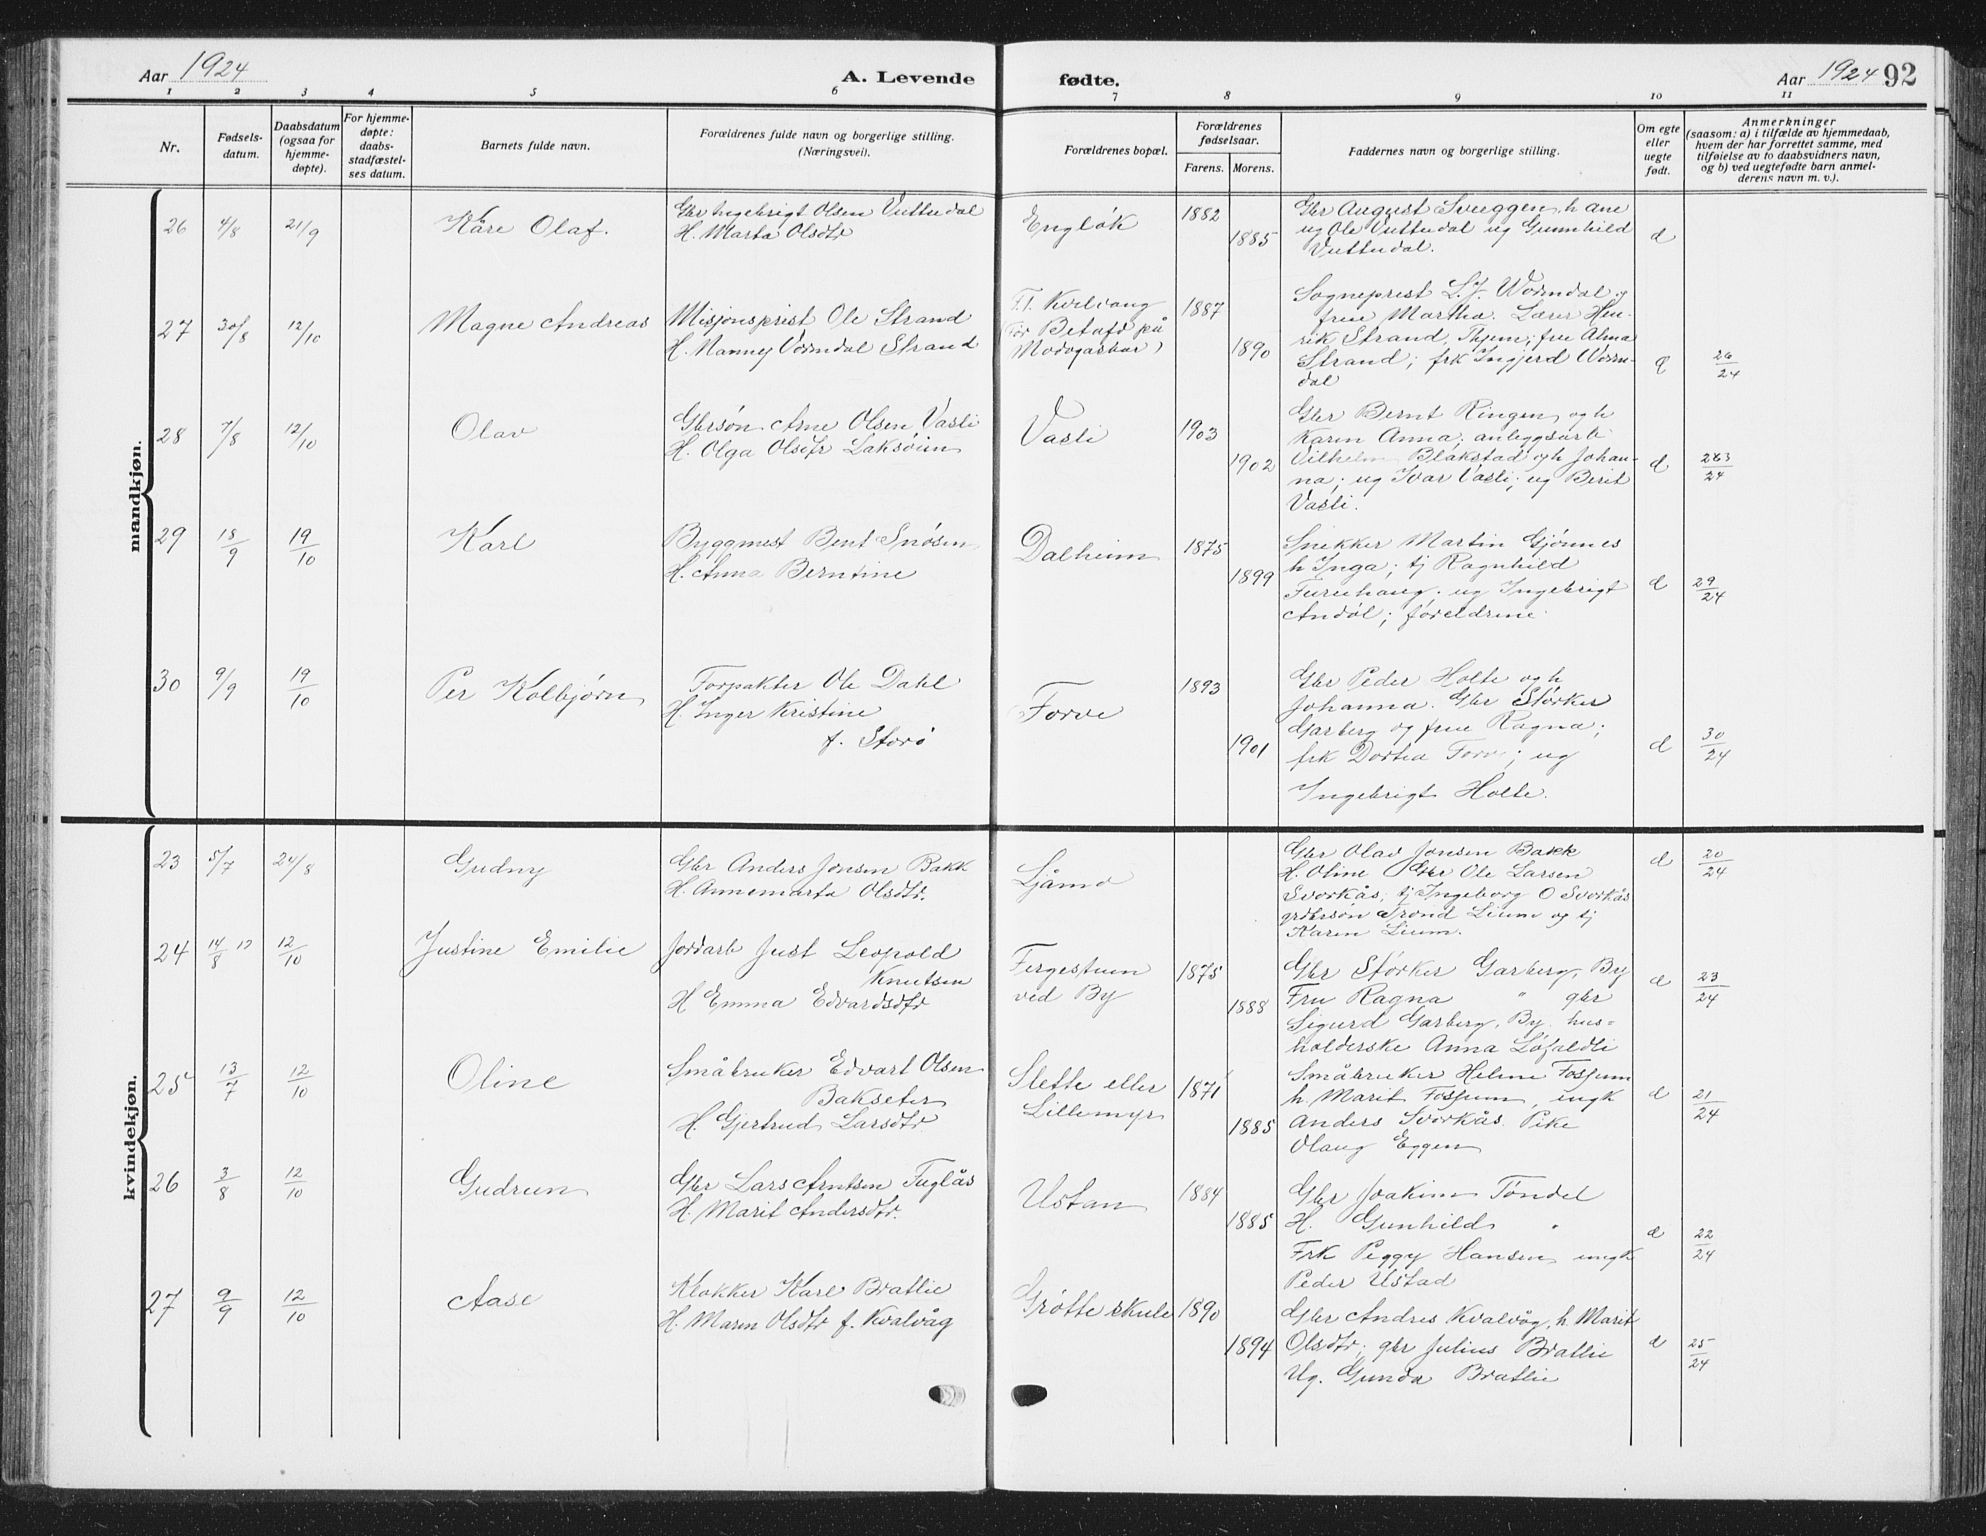 Aar 1924
A. Levende fødte.
Aar 1924 92
1 2 3 4 5 6 7 8 9 10 11
Nr.
Fødsels-
datum.
Daabsdatum
(ogsaa for
hjemme-
døpte).
For hjemme-
døpte:
daabs-
stadfæstel-
ses datum.
Barnets fulde navn.
Forældrenes fulde navn og borgerlige stilling.
(Næringsvei).
Forældrenes bopæl.
Forældrenes
fødselsaar.
Farens. Morens.
Faddernes navn og borgerlige stilling.
Om egte
eller
uegte
født.
Anmerkninger
(saasom: a) i tilfælde av hjemmedaab,
hvem der har forrettet samme, med
tilføielse av to daabsvidners navn,
og b) ved uegtefødte barn anmel-
derens navn m. v.).
mandkjøn.
26 4/8 21/9 Kåre Olaf.
Gbr Ingebrigt Olsen Vuttudal
H. Marta Olsdtr
Engløk
1882
1885
Gbr August Svuggen, h ane
ug Ole Vuttudal ug Gunnhild
Vuttudal.
d
27 30/8 12/10 Magne Andreas
Misjonsprest Ole Strand
H. Nanney Vormdal Strand
F. t. Kvilvang
(før Betafo på
Madagaskar)
1887
1890
Sogneprest L. J. Wormdal og
frue Martha. Lærer Hen-
rik Strand, Thjem; frue Alma
Strand; frk Ingjerd Worm-
dal
d
26/24
28 7/8 12/10 Olav
Gbrsøn Arne Olsen Vasli
H. Olga Olsdtr Laksøien
Vasli
1903
1902
Gbr Bernt Ringen og h
Karen Anna; anleggsarb
Vilhelm Blakstad og h Johan-
na; ug Ivar Vasli; ug Berit
Vasli.
d
29 18/9 19/10 Karl
Byggmest Bent Snøsen
H. Anna Berntine
Dalheim
1875
1899
Snekker Martin Gjønnes
h Inga; tj Ragnhild
Furuhaug; ug Ingebrigt
Andøl; foreldrene
d
29/24
30 9/9 19/10 Per Kolbjørn
Forpakter Ole Dahl
H. Inger Kristine
f. Storø
Forve
1893
1901
Gbr Peder Holte og h
Johanna. Gbr Størker
Garberg og frue Ragna;
frk Dortea Forve; ug
Ingebrigt Holte.
d
30/24
kvindekjøn.
23 5/7 24/8 Gudny
Gbr Anders Jonsen Bakk
H. Annemarta Olsdtr.
Ljåmo
Gbr Olav Jonsen Bakk
H. Oline Gbr Ole Larsen
Svorkås, tj Ingeborg O Svorkås
grdbrsøn Trond Lium og tj
Karen Lium.
d
20/24
24 14/8 12 12/10 Justine Emilie
Jordarb Just Leopold
Knutsen
H Emma Edvardsdtr
Fergestuen
ved By
1875
1888
Gbr Størker Garberg, By
Fru Ragna " gbr
Sigurd Garberg, By. hus=
holderske Anna Løfaldli
d
23/24
25 13/7 12/10 Oline
Småbruker Edvart Olsen
Bakseter
H. Gjertrud Larsdtr
Slette eller
Lillemyr
1871
1885
Småbruker Helme Fossum
h. Marit Fossum, ungk
Anders Svorkås. Pike
Olaug Eggen
d
21/24
26 3/8 12/10 Gudrun
Gbr Lars Arntsen Fuglås
H. Marit Andersdtr.
Ustan
1884
1885
Gbr Joakim Tøndel
H. Gunhild "
Frk Peggy Hansen ungk
Peder Ustad
d
22/24
27 9/9 12/10 Aase
Klokker Karl Bratlie
H. Maren Olsdtr f. Kvalvåg
Grøtte skule
1890
1894
Gbr Andres Kvalvåg, h. Marit
Olsdtr; gbr Julius Bratlie
Ug. Gunda Bratlie
d
25/24